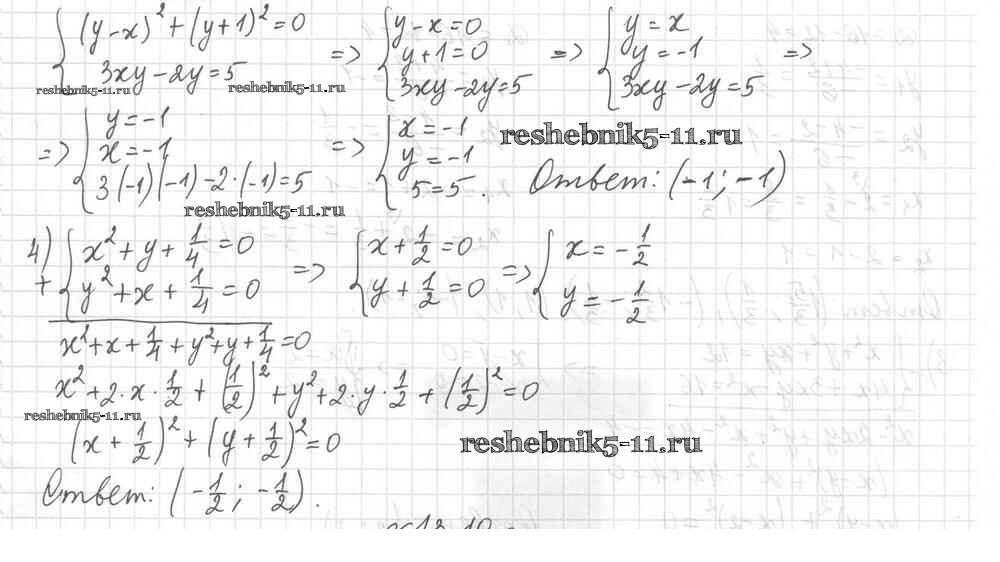 { (y-x)² + (y+1)² = 0
3xy - 2y = 5 => { y - x = 0
y + 1 = 0
3xy - 2y = 5 => { y = x
y = -1
3xy - 2y = 5 =>
reshebnik5-11.ru reshebnik5-11.ru
=> { y = -1
x = -1
3(-1)(-1) - 2·(-1) = 5 => { x = -1
y = -1
5 = 5. Ответ: (-1; -1)
reshebnik5-11.ru
reshebnik5-11.ru
4) + { x² + y + 1/4 = 0
y² + x + 1/4 = 0 => { x + 1/2 = 0
y + 1/2 = 0 => { x = -1/2
y = -1/2
x² + x + 1/4 + y² + y + 1/4 = 0
x² + 2·x·1/2 + (1/2)² + y² + 2·y·1/2 + (1/2)² = 0
reshebnik5-11.ru
(x + 1/2)² + (y + 1/2)² = 0
reshebnik5-11.ru
Ответ: (-1/2; -1/2).